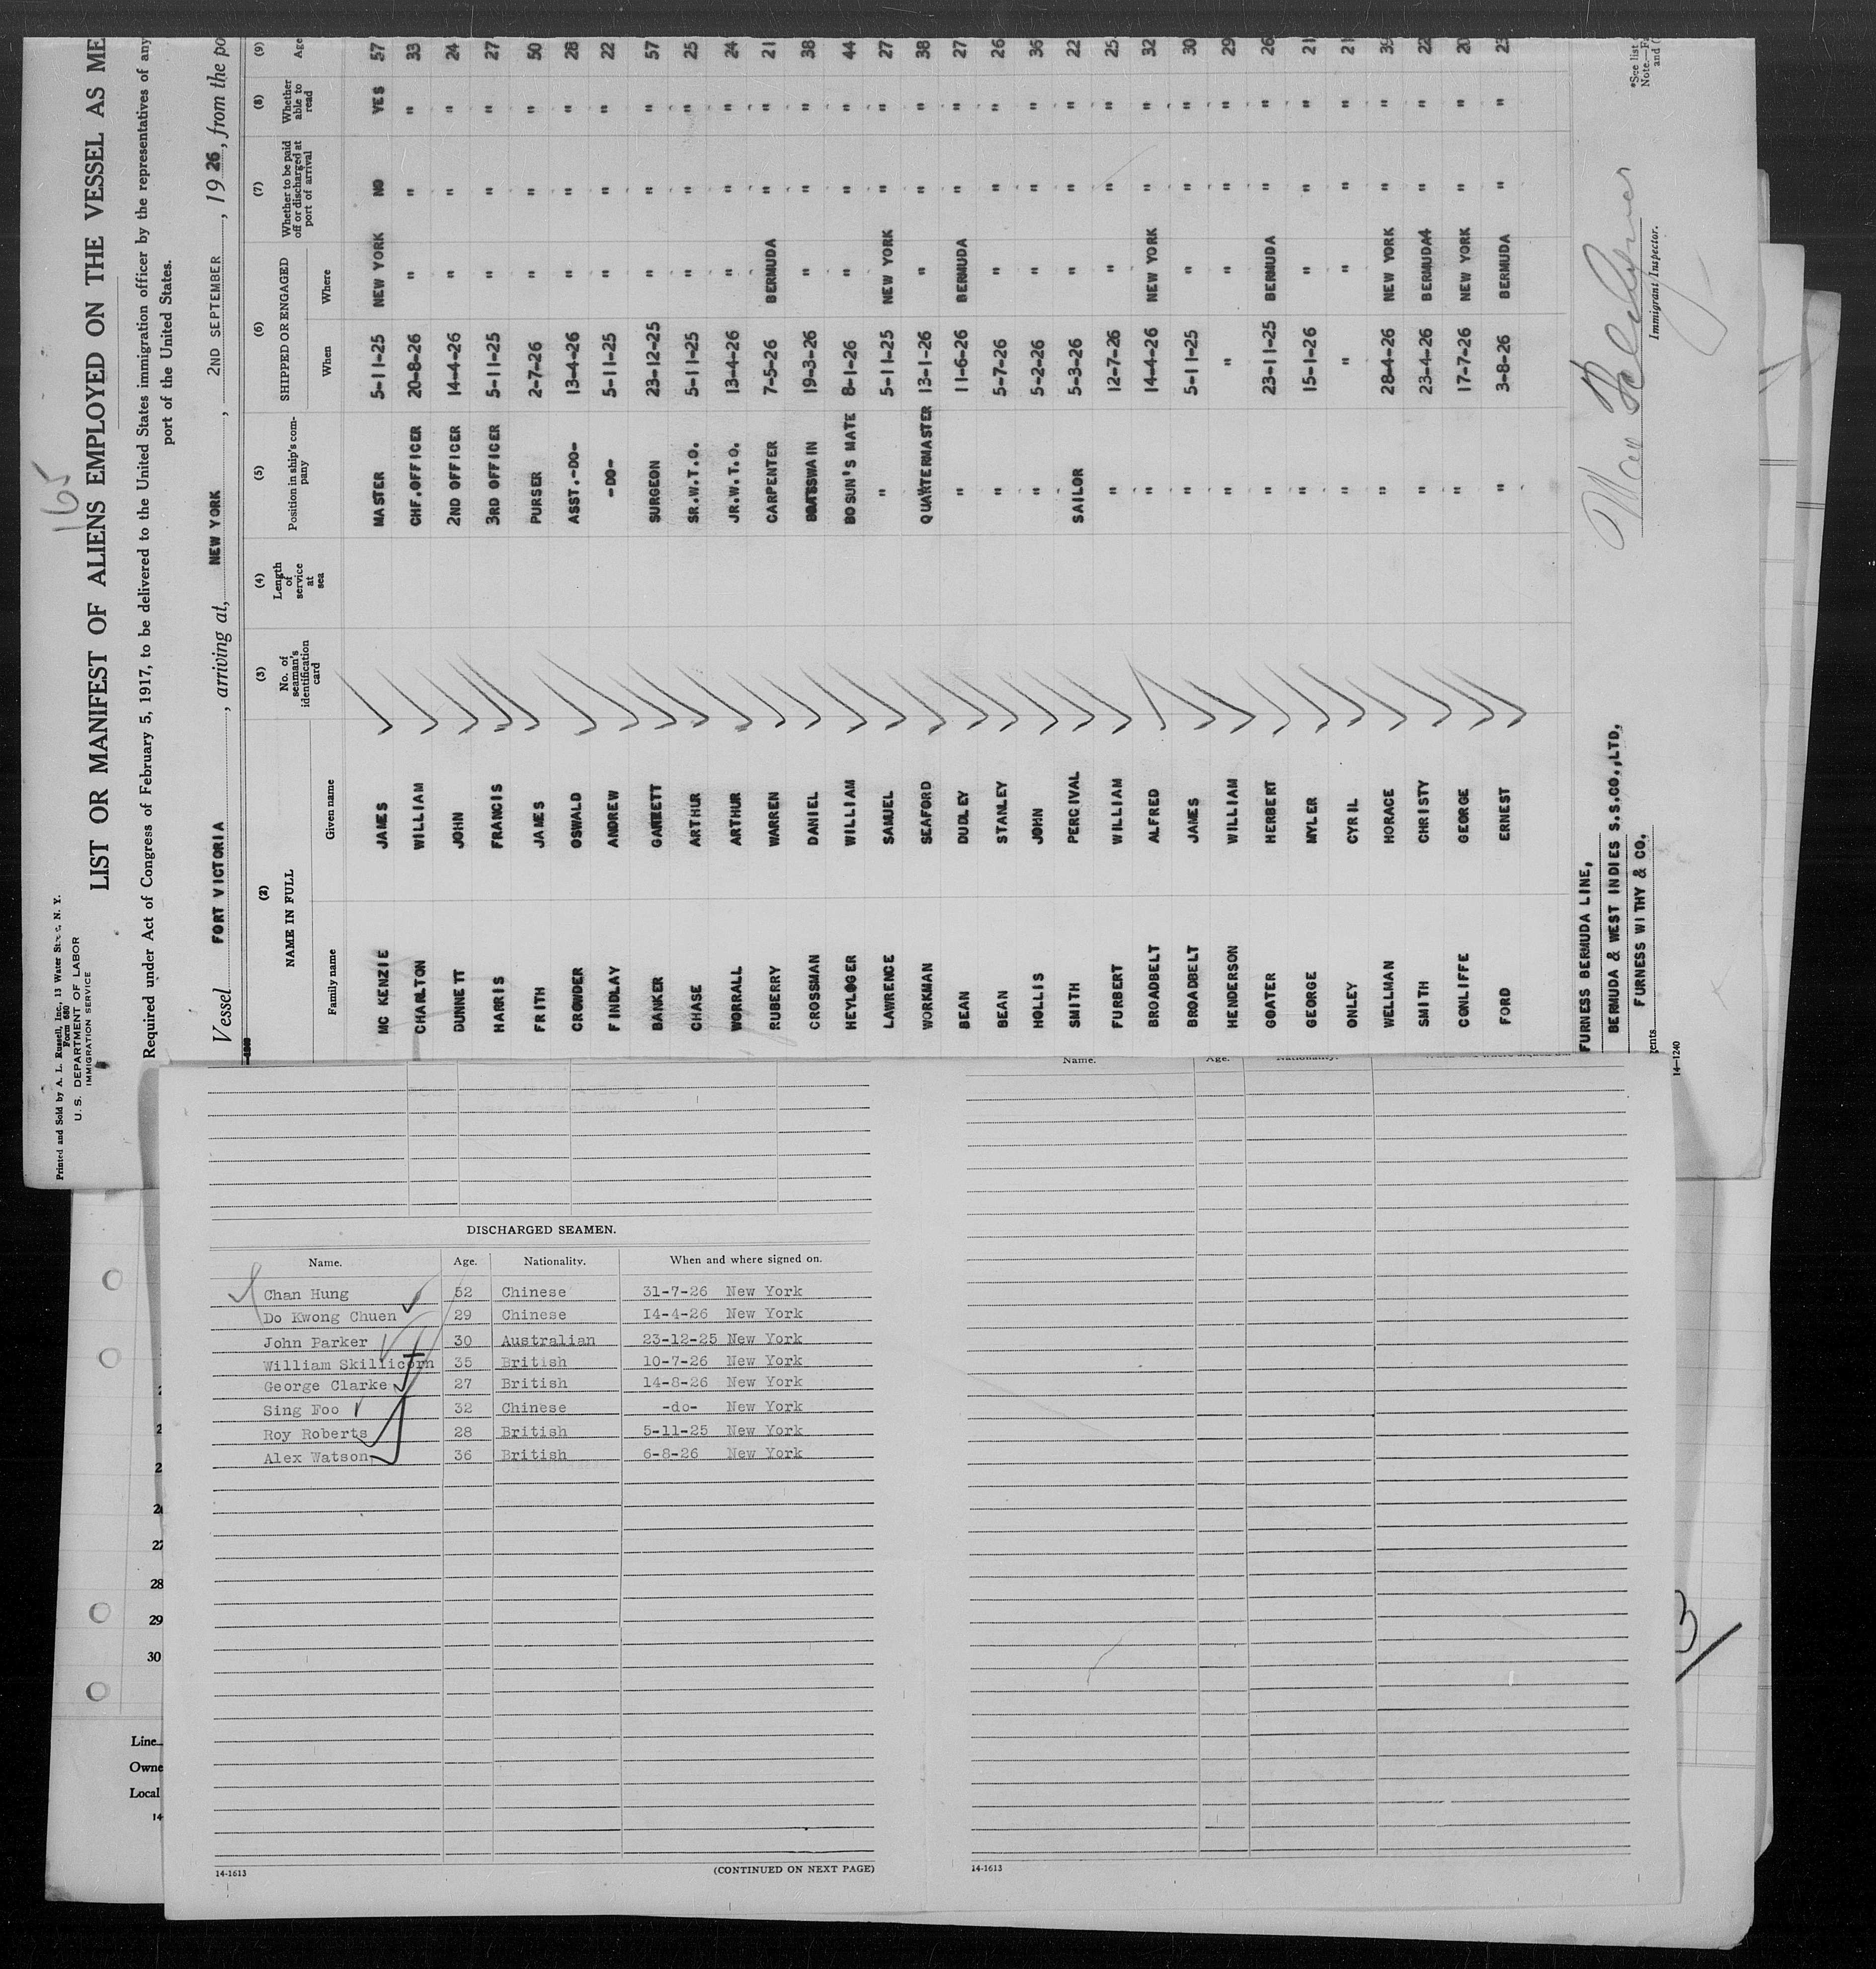 165
Printed and Sold by A. L. Russell, Inc., 13 Water Street, N. Y.
Form 680
U.S. DEPARTMENT OF LABOR
IMMIGRATION SERVICE
LIST OR MANIFEST OF ALIENS EMPLOYED ON THE VESSEL AS ME
Required under Act of Congress of February 5, 1917, to be delivered to the United States immigration officer by the representatives of any
port of the United States.
Vessel FORT VICTORIA, arriving at, NEW YORK, 2ND SEPTEMBER, 1926, from the po
(2) (3) (4) (5) (6) (7) (8) (9)
NAME IN FULL No. of seaman's identification card Length of service at sea Position in ship's company SHIPPED OR ENGAGED Whether to be paid off or discharged at port of arrival Whether able to read Age
Family name Given name When Where
MC KENZIE JAMES MASTER 5-11-25 NEW YORK NO YES 57
CHARLTON WILLIAM CHF.OFFICER 20-8-26 " " " 33
DUNNETT JOHN 2ND OFFICER 14-4-26 " " " 24
HARRIS FRANCIS 3RD OFFICER 5-11-25 " " " 27
FRITH JAMES PURSER 2-7-26 " " " 50
CROWDER OSWALD ASST.-DO- 13-4-26 " " " 28
FINDLAY ANDREW -DO- 5-11-25 " " " 22
BANKER GARRETT SURGEON 23-12-25 " " " 57
CHASE ARTHUR SR.W.T.O. 5-11-25 " " " 25
WORRALL ARTHUR JR.W.T.O. 13-4-26 " " " 24
RUBERRY WARREN CARPENTER 7-5-26 BERMUDA " " 21
CROSSMAN DANIEL BOATSWAIN 19-3-26 " " " 38
HEYLOGER WILLIAM BOSUN'S MATE 8-1-26 " " " 44
LAWRENCE SAMUEL " 5-11-25 NEW YORK " " 27
WORKMAN SEAFORD QUARTERMASTER 13-1-26 " " " 38
BEAN DUDLEY " 11-6-26 BERMUDA " " 27
BEAN STANLEY " 5-7-26 " " " 26
HOLLIS JOHN " 5-2-26 " " " 36
SMITH PERCIVAL SAILOR 5-3-26 " " " 22
FURBERT WILLIAM " 12-7-26 " " " 25
BROADBELT ALFRED " 14-4-26 NEW YORK " " 32
BROADBELT JAMES " 5-11-25 " " " 30
HENDERSON WILLIAM " " " " " 29
GOATER HERBERT " 23-11-25 BERMUDA " " 26
GEORGE MYLER " 15-11-26 " " " 21
ONLEY CYRIL " " " " " 21
WELLMAN HORACE " 28-4-26 NEW YORK " " 39
SMITH CHRISTY " 23-4-26 BERMUDA4 " " 22
CONLIFFE GEORGE " 17-7-26 NEW YORK " " 20
FORD ERNEST " 3-8-26 BERMUDA " " 23
FURNESS BERMUDA LINE,
BERMUDA & WEST INDIES S.S.CO.,LTD.
FURNESS WITHY & CO.
Immigrant Inspector.
*See list
Note.—Fa
and (
14-1240
DISCHARGED SEAMEN.
Name. Age. Nationality. When and where signed on.
Chan Hung 52 Chinese 31-7-26 New York
Do Kwong Chuen 29 Chinese 14-4-26 New York
John Parker 30 Australian 23-12-25 New York
William Skillicorn 35 British 10-7-26 New York
George Clarke 27 British 14-8-26 New York
Sing Foo 32 Chinese -do- New York
Roy Roberts 28 British 5-11-25 New York
Alex Watson 36 British 6-8-26 New York
14-1613
(CONTINUED ON NEXT PAGE)
Name. Age. Nationality.
14-1613
27
28
29
30
Line
Owne
Local
14
3